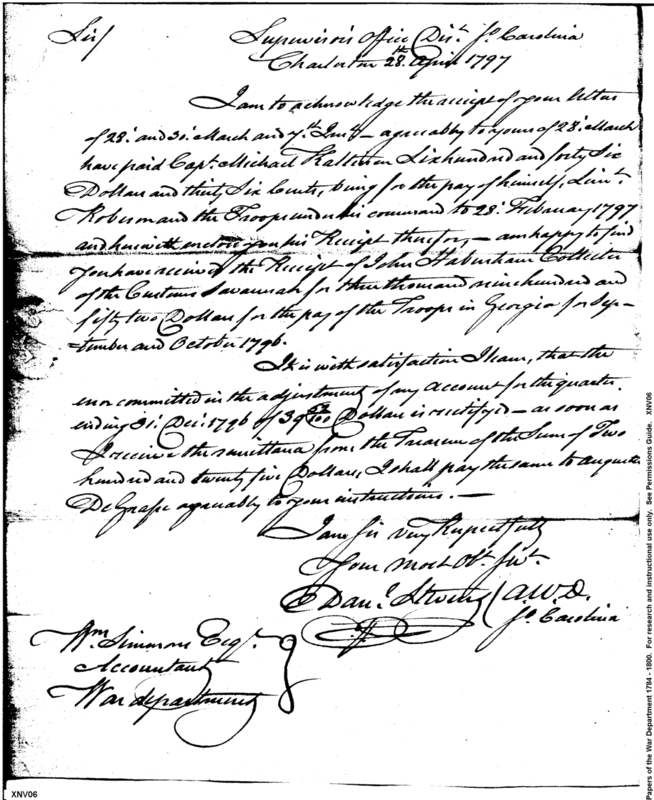 Sir/ Supervisors Office Dist. So. Carolina
Charleston 28th April 1797
I am to acknowledge the receipt of your letters
of 28t. and 30t. March and 7th Inst. — agreeably to yours of 28t. March
have paid Capt. Michael Kalteisen Six hundred and forty Six
Dollars and thirty Six Cents, being for the pay of himself, Lieut.
Roberson and the Troops under his command to 28t. February 1797
and herewith enclose you his Receipt therefor, — am happy to find
you have received the Receipt of John Habersham Collector
of the Customs Savannah for three thousand nine hundred and
fifty two Dollars for the pay of the Troops in Georgia for Sep-
-tember and October 1796.
It is with satisfaction I learn, that the
error committed in the adjustment of my Account for the quarter
ending 31t. Dec. 1796 of 39 /100 Dollars is rectifyed — as soon as
I receive the remittance from the Treasurer of the Sum of Two
hundred and twenty five Dollars, I shall pay the same to
De Grasse agreeably to your instructions. —
I am Sir very Respectfully
Your most Obt. Sert.
Danl. Stevens A.W.D.
So. Carolina
Wm. Simmons Esqr.
Accountant
War department
XNV06
Papers of the War Department 1784 - 1800. For research and instructional use only. See Permissions Guide. XNV06